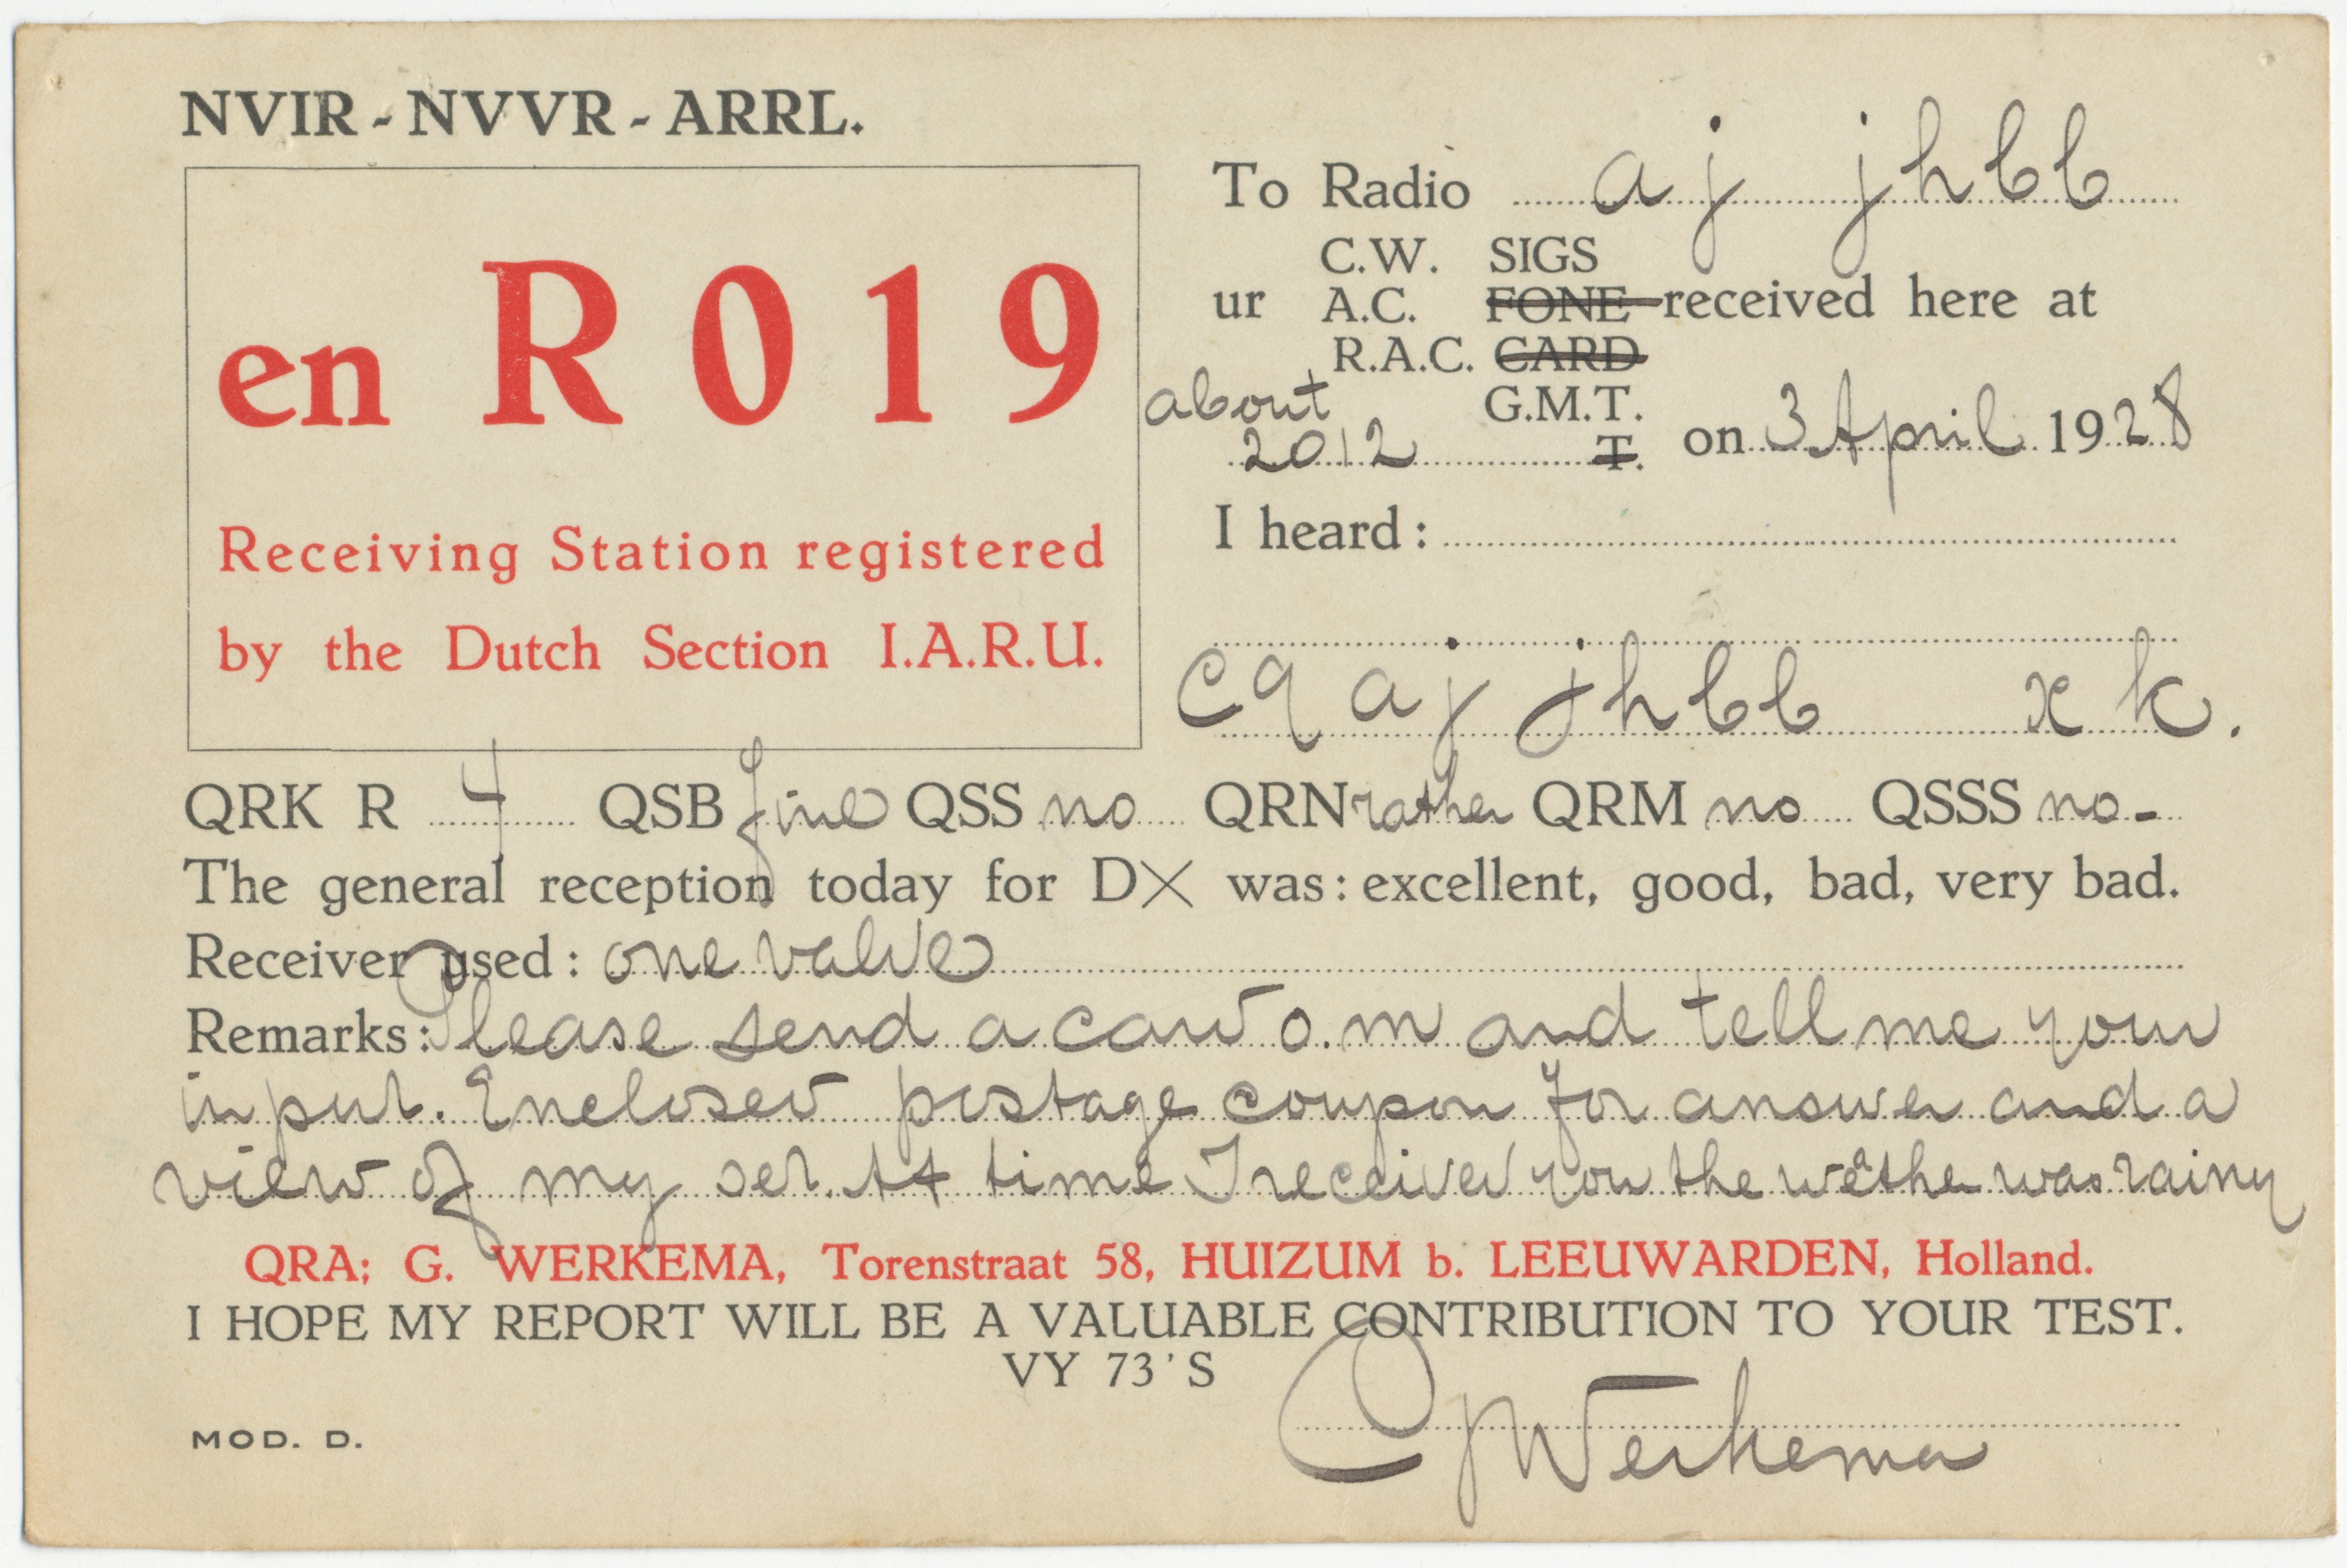 NVIR - NVVR - ARRL.
en R 0 1 9
Receiving Station registered
by the Dutch Section I.A.R.U.
To Radio aj jhbb
C.W. SIGS
ur A.C. FONE received here at
R.A.C. CARD
about G.M.T.
2012 T. on 3 April 1928
I heard:
cq aj jhbb x k.
QRK R 4 QSB fine QSS no QRN rather QRM no QSSS no-
The general reception today for DX was: excellent, good, bad, very bad.
Receiver used: one valve
Remarks: Please send a card o.m and tell me your
input. Enclosed postage coupon for answer and a
view of my set. At time I received you the weather was rainy
QRA; G. WERKEMA, Torenstraat 58, HUIZUM b. LEEUWARDEN, Holland.
I HOPE MY REPORT WILL BE A VALUABLE CONTRIBUTION TO YOUR TEST.
VY 73'S
G Werkema
MOD. D.